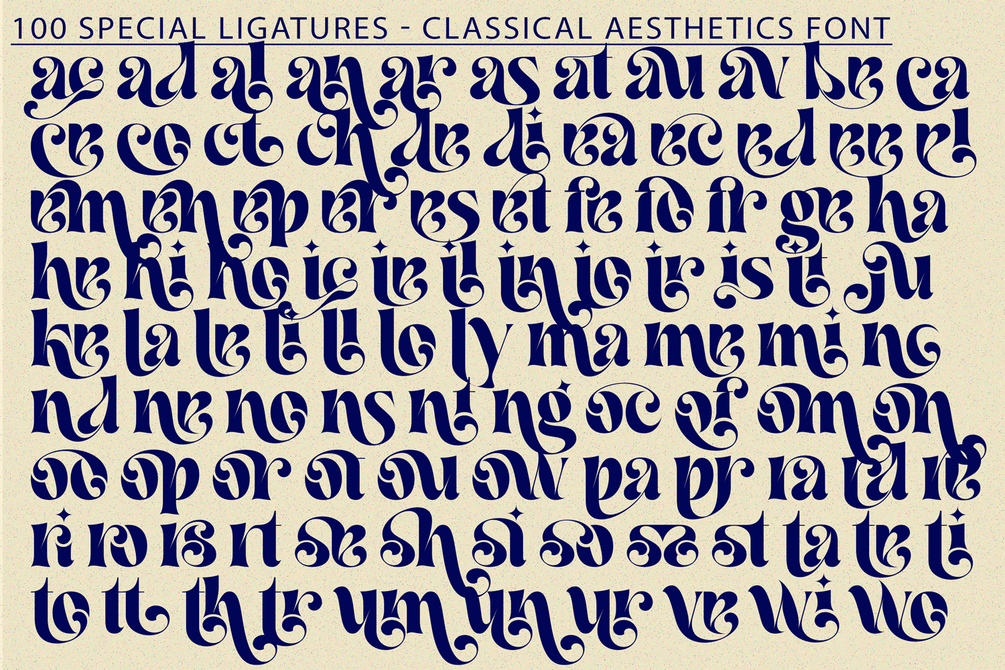 100 SPECIAL LIGATURES - CLASSICAL AESTHETICS FONT
ac ad al an ar as at au av be ca
ce co ct ch de di ea ec ed ee el
em en ep er es et fe fo fr ge ha
he hi ho ic ie il in io ir is it ju
ke la le li ll lo ly ma me mi nc
nd ne no ns nt ng oc of om on
oo op or ot ou ow pa pr ra rd re
ri ro rs rt se sh si so ss st ta te ti
to tt th tr um un ur ve wi wo